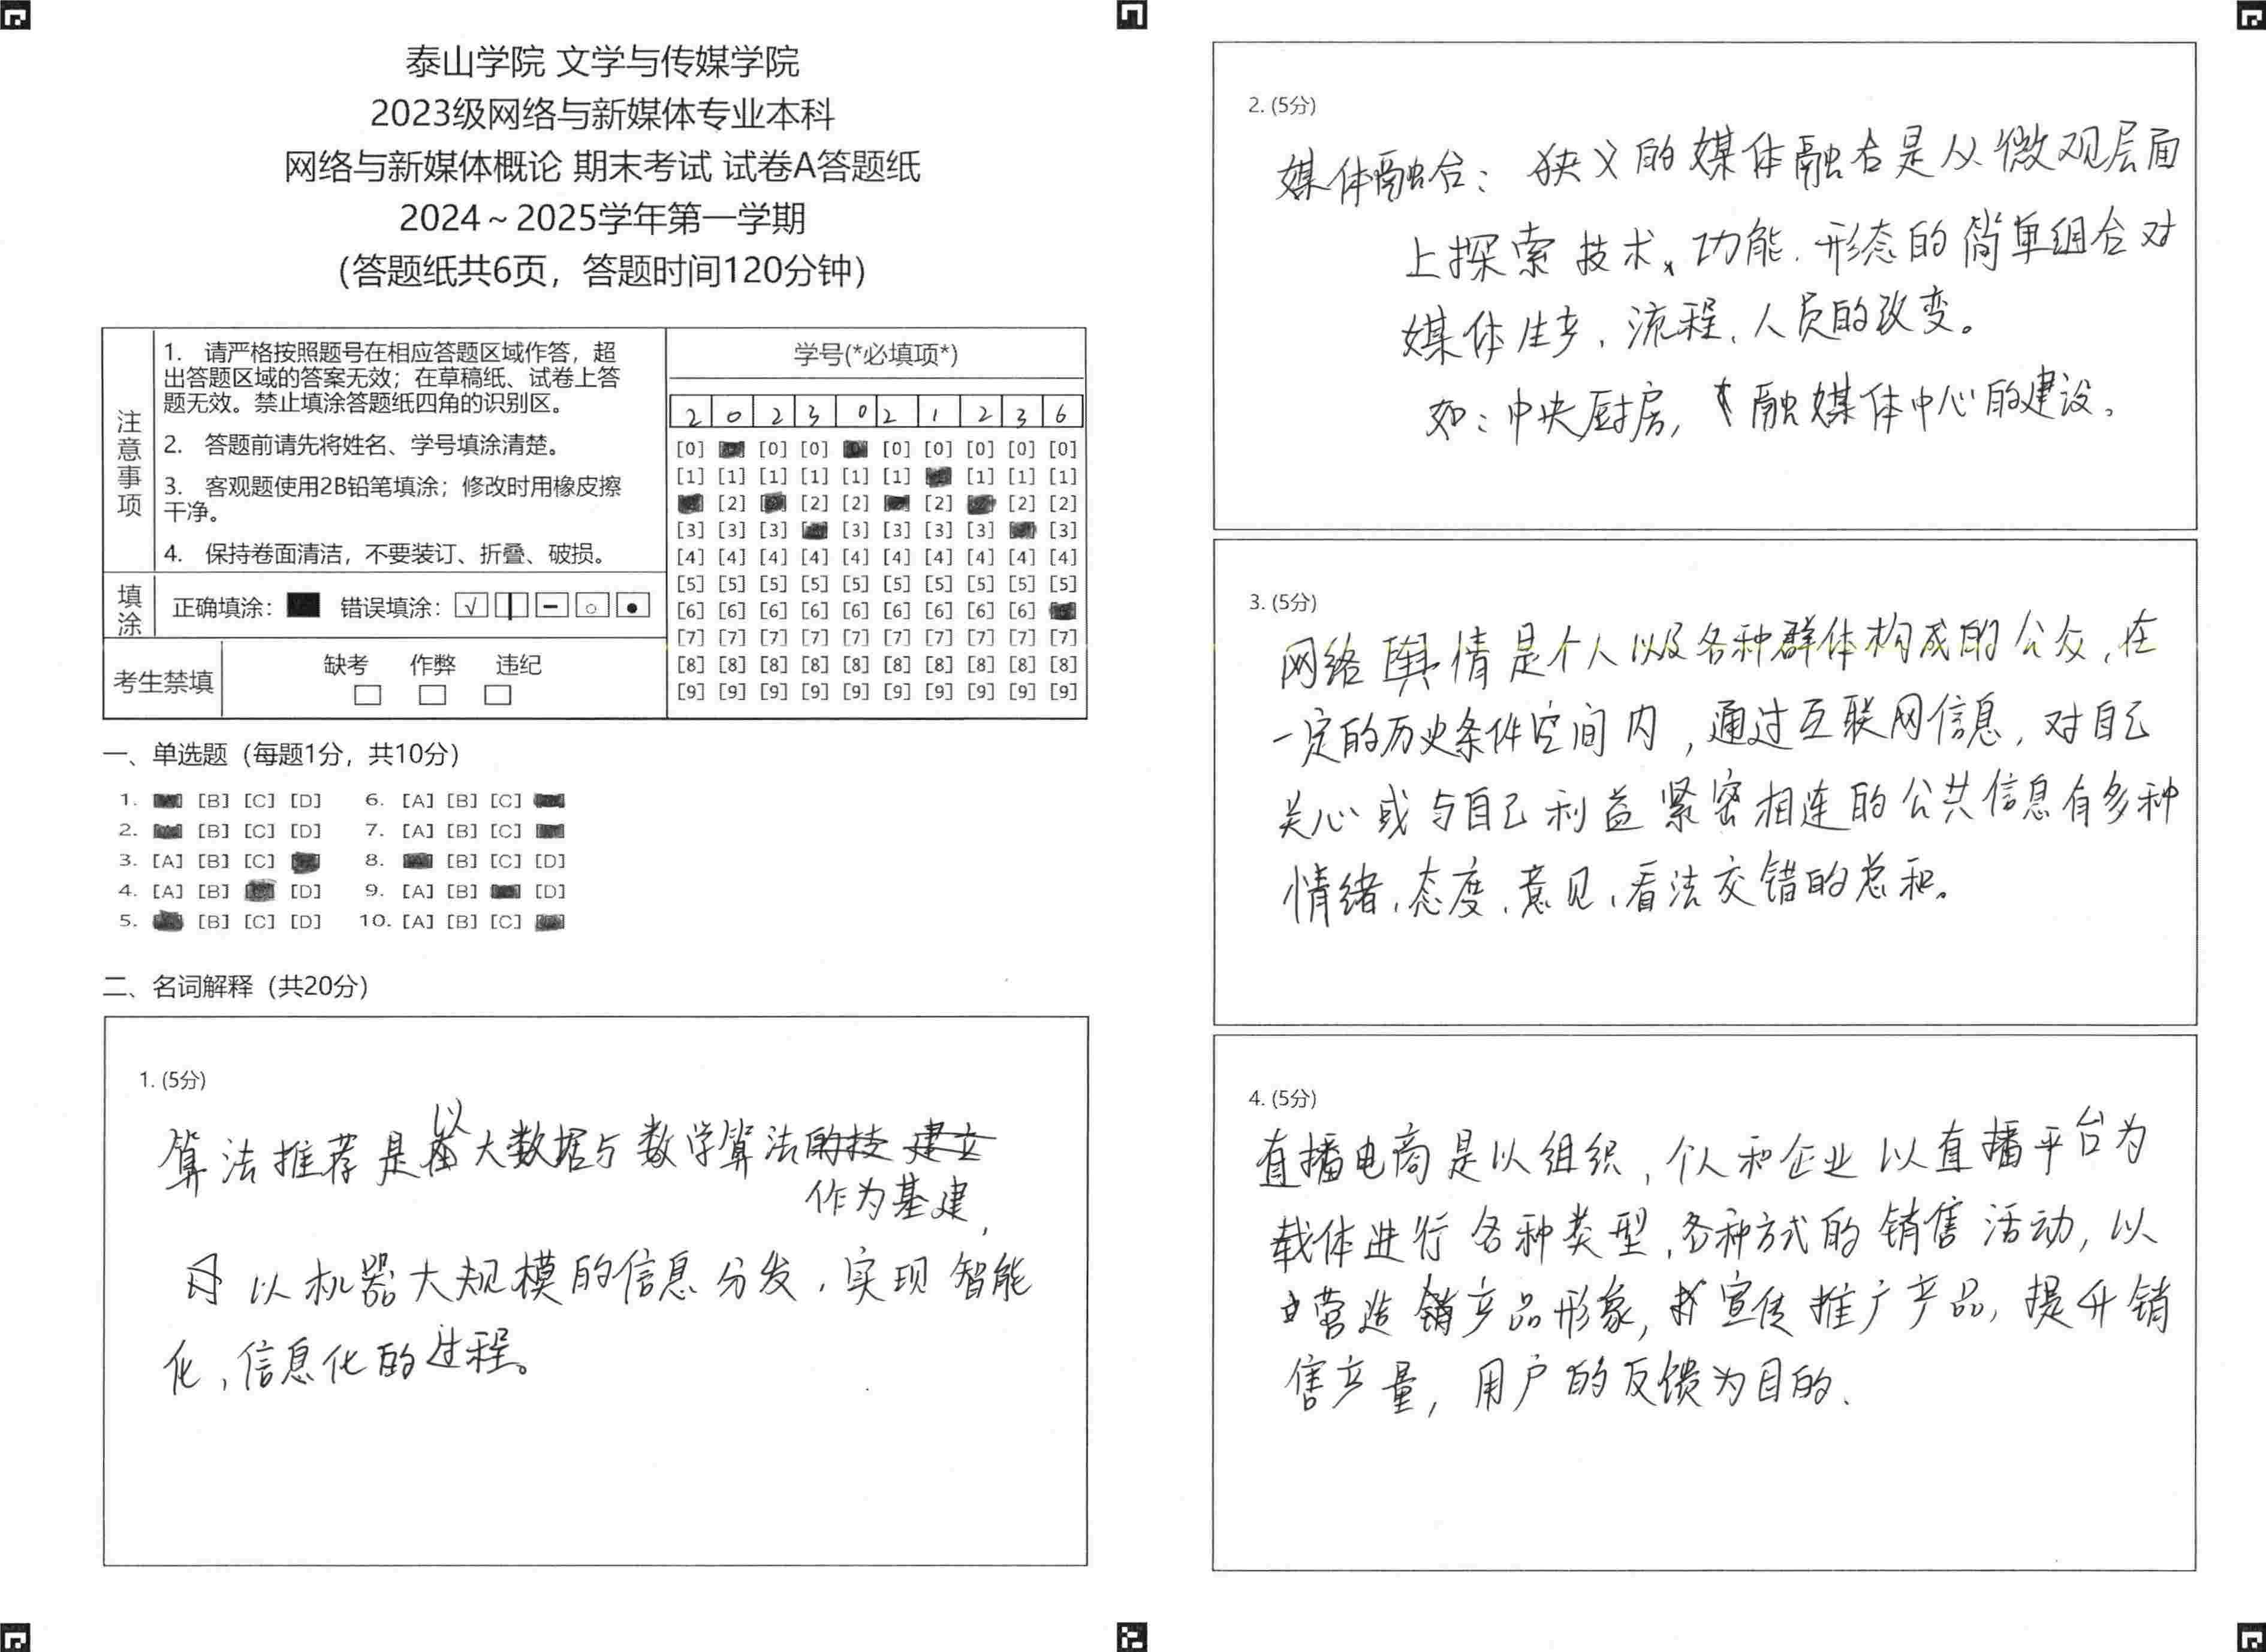 泰山学院 文学与传媒学院
2023级网络与新媒体专业本科
网络与新媒体概论 期末考试 试卷A答题纸
2024～2025学年第一学期
（答题纸共6页，答题时间120分钟）
注意事项
1. 请严格按照题号在相应答题区域作答，超
出答题区域的答案无效；在草稿纸、试卷上答
题无效。禁止填涂答题纸四角的识别区。
2. 答题前请先将姓名、学号填涂清楚。
3. 客观题使用2B铅笔填涂；修改时用橡皮擦
干净。
4. 保持卷面清洁，不要装订、折叠、破损。
填涂
正确填涂： 错误填涂：
考生禁填
缺考 作弊 违纪
学号(*必填项*)
2 0 2 3 0 2 1 2 3 6
[0] [0] [0] [0] [0] [0] [0] [0]
[1] [1] [1] [1] [1] [1] [1] [1] [1]
[2] [2] [2] [2] [2] [2]
[3] [3] [3] [3] [3] [3] [3] [3]
[4] [4] [4] [4] [4] [4] [4] [4] [4] [4]
[5] [5] [5] [5] [5] [5] [5] [5] [5] [5]
[6] [6] [6] [6] [6] [6] [6] [6] [6]
[7] [7] [7] [7] [7] [7] [7] [7] [7] [7]
[8] [8] [8] [8] [8] [8] [8] [8] [8] [8]
[9] [9] [9] [9] [9] [9] [9] [9] [9] [9]
一、单选题（每题1分，共10分）
1. [B] [C] [D] 6. [A] [B] [C]
2. [B] [C] [D] 7. [A] [B] [C]
3. [A] [B] [C] 8. [B] [C] [D]
4. [A] [B] [D] 9. [A] [B] [D]
5. [B] [C] [D] 10. [A] [B] [C]
二、名词解释（共20分）
1. (5分)
算法推荐是以大数据与数学算法的技 建立
作为基建，
以机器大规模的信息分发，实现智能
化，信息化的过程。
2. (5分)
媒体融合：狭义的媒体融合是从微观层面
上探索技术、功能、形态的简单组合对
媒体生产、流程、人员的改变。
如：中央厨房，融媒体中心的建设。
3. (5分)
网络舆情是个人以及各种群体构成的公众，在
一定的历史条件空间内，通过互联网信息，对自己
关心或与自己利益紧密相连的公共信息有多种
情绪、态度、意见、看法交错的总和。
4. (5分)
直播电商是以组织，个人和企业以直播平台为
载体进行各种类型、各种方式的销售活动，以
营造产品形象，宣传推广产品，提升销
售产量，用户的反馈为目的.